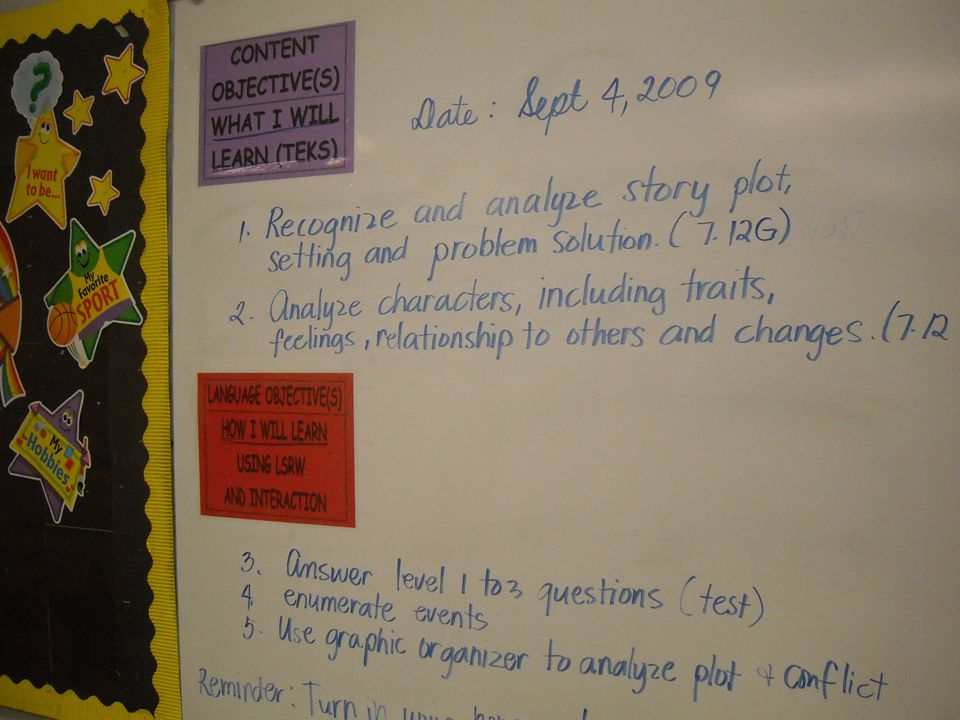 I want
to be...
My
Favorite
SPORT
My
Hobbies
CONTENT
OBJECTIVE(S)
WHAT I WILL
LEARN (TEKS)
Date: Sept 4, 2009
1. Recognize and analyze story plot,
setting and problem solution. (7.12G)
2. Analyze characters, including traits,
feelings, relationship to others and changes. (7.12
LANGUAGE OBJECTIVE(S)
HOW I WILL LEARN
USING LSRW
AND INTERACTION
3. Answer level 1 to 3 questions (test)
4. enumerate events
5. Use graphic organizer to analyze plot & conflict
Reminder: Turn in your